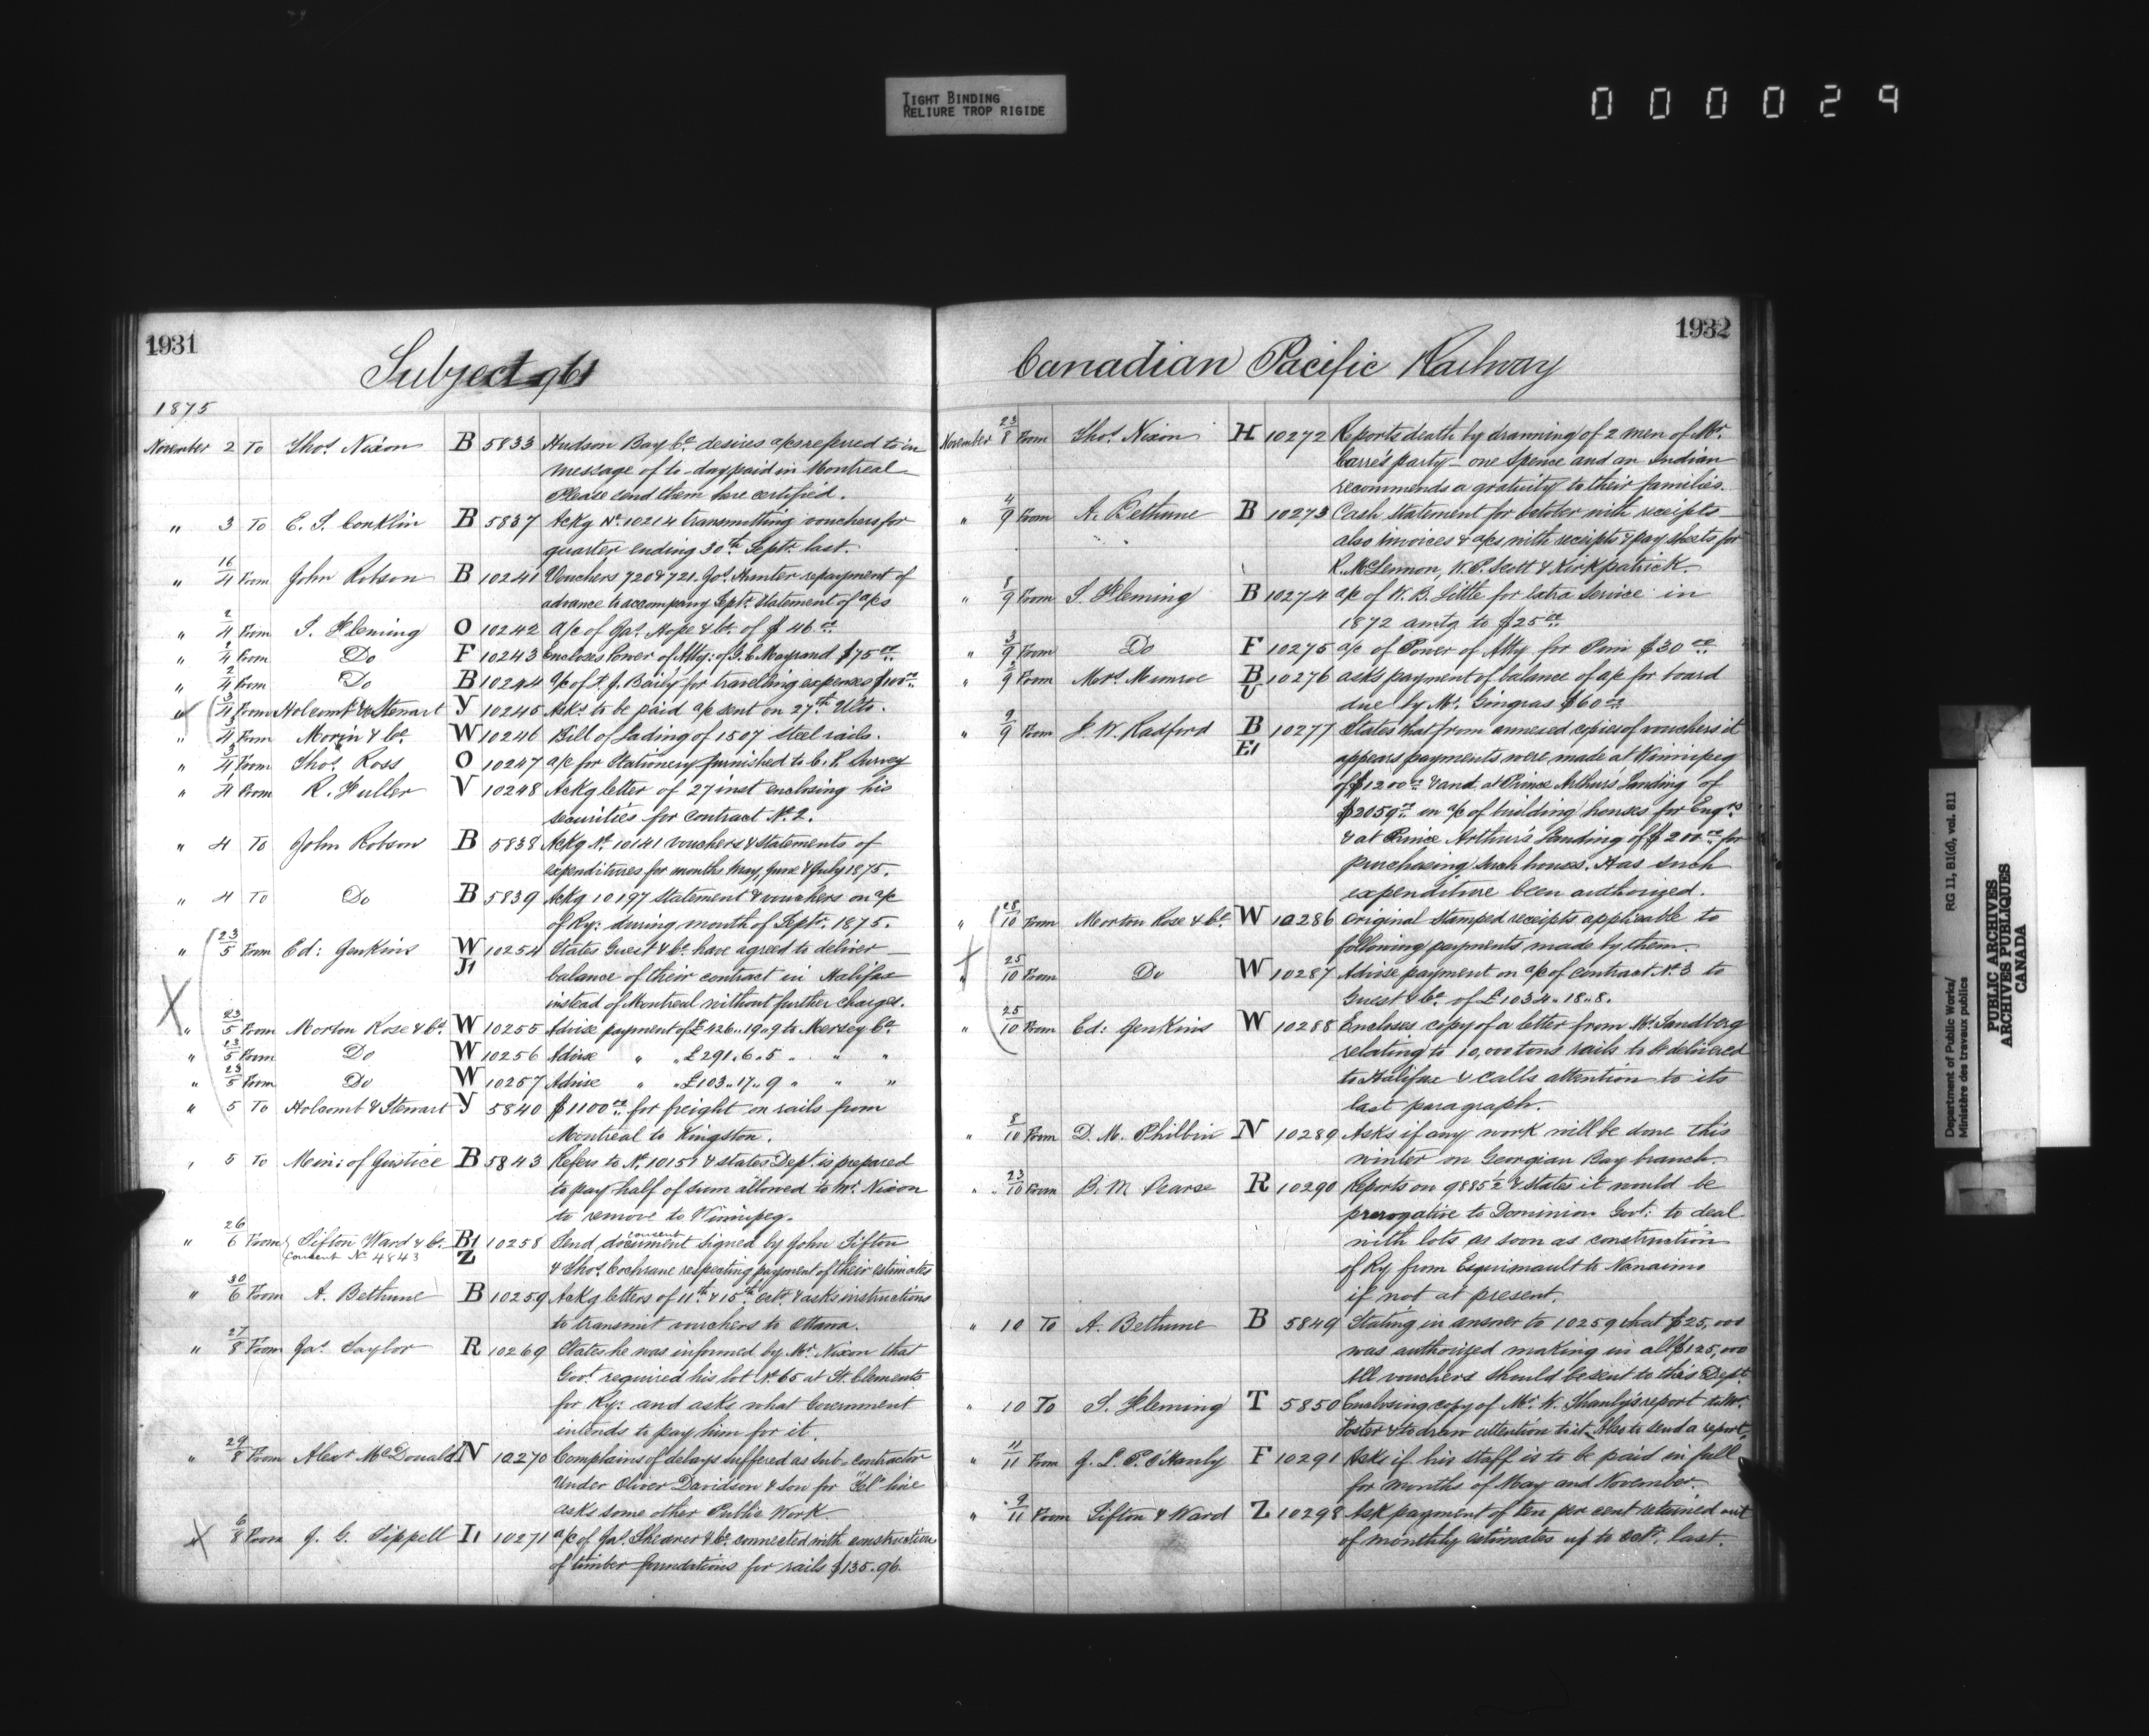 TIGHT BINDING
RELIURE TROP RIGIDE
000029
1931
Subject 961
1875
November 2 To Thos. Nixon B 5833 Hudson Bay Co. desires a/cs referred to in
message of to-day paid in Montreal
Please send them here certified.
" 3 To E. S. Conklin B 5837 Ackg No. 10214 transmitting vouchers for
quarter ending 30th Septr. last.
" 16/4 From John Robson B 10241 Vouchers 720 & 721. Jos. Hunter repayment of
advance to accompany Septr. Statement of a/cs
" 2/4 From S. Fleming O 10242 a/c of Jas. Hope & Co. of $46.00
" 2/4 From Do F 10243 Encloses Power of Atty: of G. C. Mayrand $75.00
" 2/4 From Do B 10244 a/c of J. Baily for travelling expenses $100.00
" 3/4 From Holcomb & Stewart Y 10245 Asks to be paid a/c sent on 27th Ulto.
" 3/4 From Morin & Co. W 10246 Bill of Lading of 1507 steel rails.
" 3/4 From Thos. Ross O 10247 a/c for Stationery furnished to C. P. Survey
" 1/4 From R. Fuller V 10248 Ackg letter of 27 inst enclosing his
securities for contract No. 2.
" 4 To John Robson B 5838 Ackg No. 10141 vouchers & statements of
expenditures for months May, June & July 1875.
" 4 To Do B 5839 Ackg 10197 Statement & vouchers on a/c
of Ry: during month of Septr. 1875.
" 23/5 From Ed: Jenkins W J1 10254 States Guest & Co. have agreed to deliver
balance of their contract in Halifax
instead of Montreal without further charges.
" 23/5 From Morton Rose & Co. W 10255 Advise payment of £426..19..9 to Mersey Co.
" 23/5 From Do W 10256 Advise " " £291.6.5 " " "
" 23/5 From Do W 10257 Advise " " £103..17..9 " " "
" 5 To Holcomb & Stewart Y 5840 $1100.00 for freight on rails from
Montreal to Kingston.
" 5 To Min: of Justice B 5843 Refers to No. 10151 & states Dept. is prepared
to pay half of sum allowed to Mr. Nixon
to remove to Winnipeg.
" 26/6 From Sifton Ward & Co. B1 Z 10258 Send consent document signed by John Sifton
Consent No. 4843
& Thos. Cochrane respecting payment of their estimates
" 30/6 From A. Bethune B 10259 Ackg letters of 11th & 15th Octr. & asks instructions
to transmit vouchers to Ottawa.
" 27/8 From Jas. Taylor R 10269 States he was informed by Mr. Nixon that
Govt. required his lot No. 65 at St. Clements
for Ry: and asks what Government
intends to pay him for it.
" 29/8 From Alexr. McDonald N 10270 Complains of delays suffered as sub-contractor
Under Oliver Davidson & Son for "Tel" line
asks some other Public Work.
" 6/8 From J. G. Sippell I1 10271 a/c of Jas. Shearer & Co. connected with construction
of timber foundations for rails $135.96.
1932
Canadian Pacific Railway
November 23/8 From Thos. Nixon H 10272 Reports death by drowning of 2 men of Mr.
Carre's party – one Spence and an Indian
recommends a gratuity to their families.
" 4/9 From A. Bethune B 10273 Cash Statement for October with receipts
also invoices & a/cs with receipts & pay sheets for
R. McLennon, W. P. Scott & Kirkpatrick
" 8/9 From S. Fleming B 10274 a/c of W. B. Little for Extra Service in
1872 amtg to $25.00
" 3/9 From Do F 10275 a/c of Power of Atty for Pim $30.00
" 9 From Mrs. Munroe B U 10276 asks payment of balance of a/c for board
due by Mr. Gingras $60.00
" 9/9 From J. W. Radford B E1 10277 States that from annexed copies of vouchers it
appears payments were made at Winnipeg
of $1200.00 & and at Prince Arthur's Landing of
$2059 on a/c of building houses for Engrs.
& at Prince Arthur's Landing of $200.00 for
purchasing such houses. Has such
expenditure been authorized.
" 28/10 From Morton Rose & Co. W 10286 Original Stamped receipts applicable to
following payments made by them.
" 25/10 From Do W 10287 Advise payment on a/c of contract No. 3 to
Guest & Co. of £1034..18..8.
" 25/10 From Ed: Jenkins W 10288 Encloses copy of a letter from Mr. Sandberg
relating to 10,000 tons rails to be delivered
to Halifax & calls attention to its
last paragraph.
" 8/10 From D. M. Philbin N 10289 Asks if any work will be done this
winter on Georgian Bay branch.
" 23/10 From B. W. Pearse R 10290 Reports on 9885 1/2 & states it would be
prerogative to Dominion Govt: to deal
with lots as soon as construction
of Ry from Esquimault to Nanaimo
if not at present.
" 10 To A. Bethune B 5849 Stating in answer to 10259 that $25,000
was authorized making in all $125,000
All vouchers should be sent to this Dept.
" 10 To S. Fleming T 5850 Enclosing copy of Mr. W. Shanly's report to Mr.
Foster & to draw attention to it. Also to send a report.
" 11/11 From J. L. P. O'Hanly F 10291 Asks if his staff is to be paid in full
for months of May and November.
" 9/11 From Sifton & Ward Z 10298 Ask payment of ten per cent retained out
of monthly estimates up to Octr. last.
Department of Public Works/ RG 11, B1(d), vol. 811
Ministère des travaux publics
PUBLIC ARCHIVES
ARCHIVES PUBLIQUES
CANADA